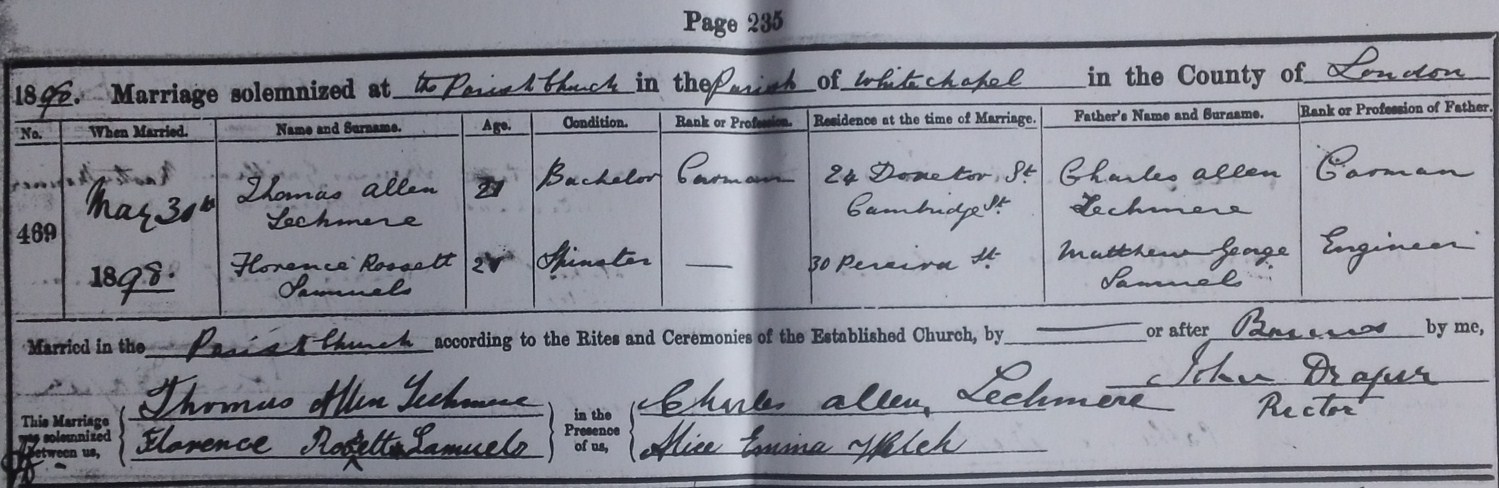 Page 235
1898. Marriage solemnized at the Parish Church in the Parish of Whitechapel in the County of London
No. When Married. Name and Surname. Age. Condition. Rank or Profession. Residence at the time of Marriage. Father's Name and Surname. Rank or Profession of Father.
Thomas allen Bachelor Carman 24 St Charles allen Carman
May 30th Lechmere 21 Cambridge St. Lechmere
469
Florence Rossett 21 Spinster — 30 Pereira St. Matthew George Engineer
1898. Samuels Samuels
Married in the Parish Church according to the Rites and Ceremonies of the Established Church, by ——— or after Banns by me,
John Draper
Rector
This Marriage was solemnized between us, Thomas Allen Lechmere in the Presence of us, Charles allen Lechmere
Florence Rosetta Samuels Alice Emma Welch